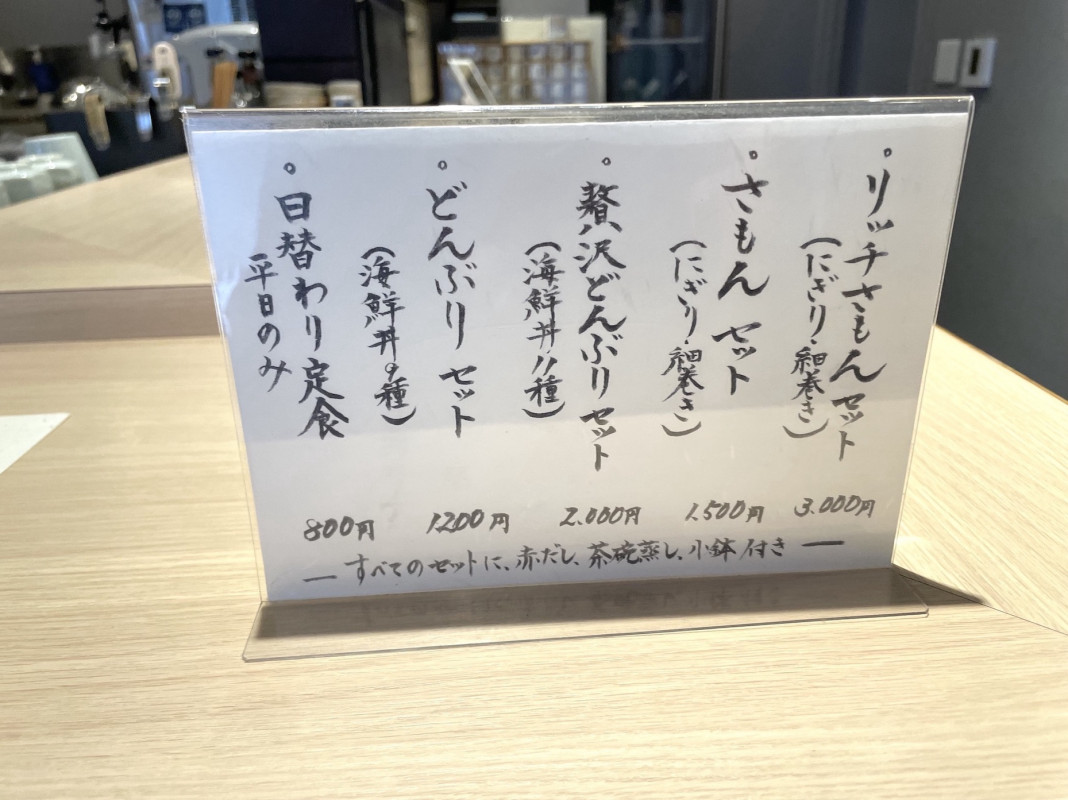 。リッチさもんセット
(にぎり・細巻き)
3.000円
。さもんセット
(にぎり・細巻き)
1.500円
。贅沢どんぶりセット
(海鮮丼11種)
2.000円
。どんぶりセット
(海鮮丼9種)
1200円
。日替わり定食
平日のみ
800円
ー すべてのセットに、赤だし、茶碗蒸し、小鉢付き ー